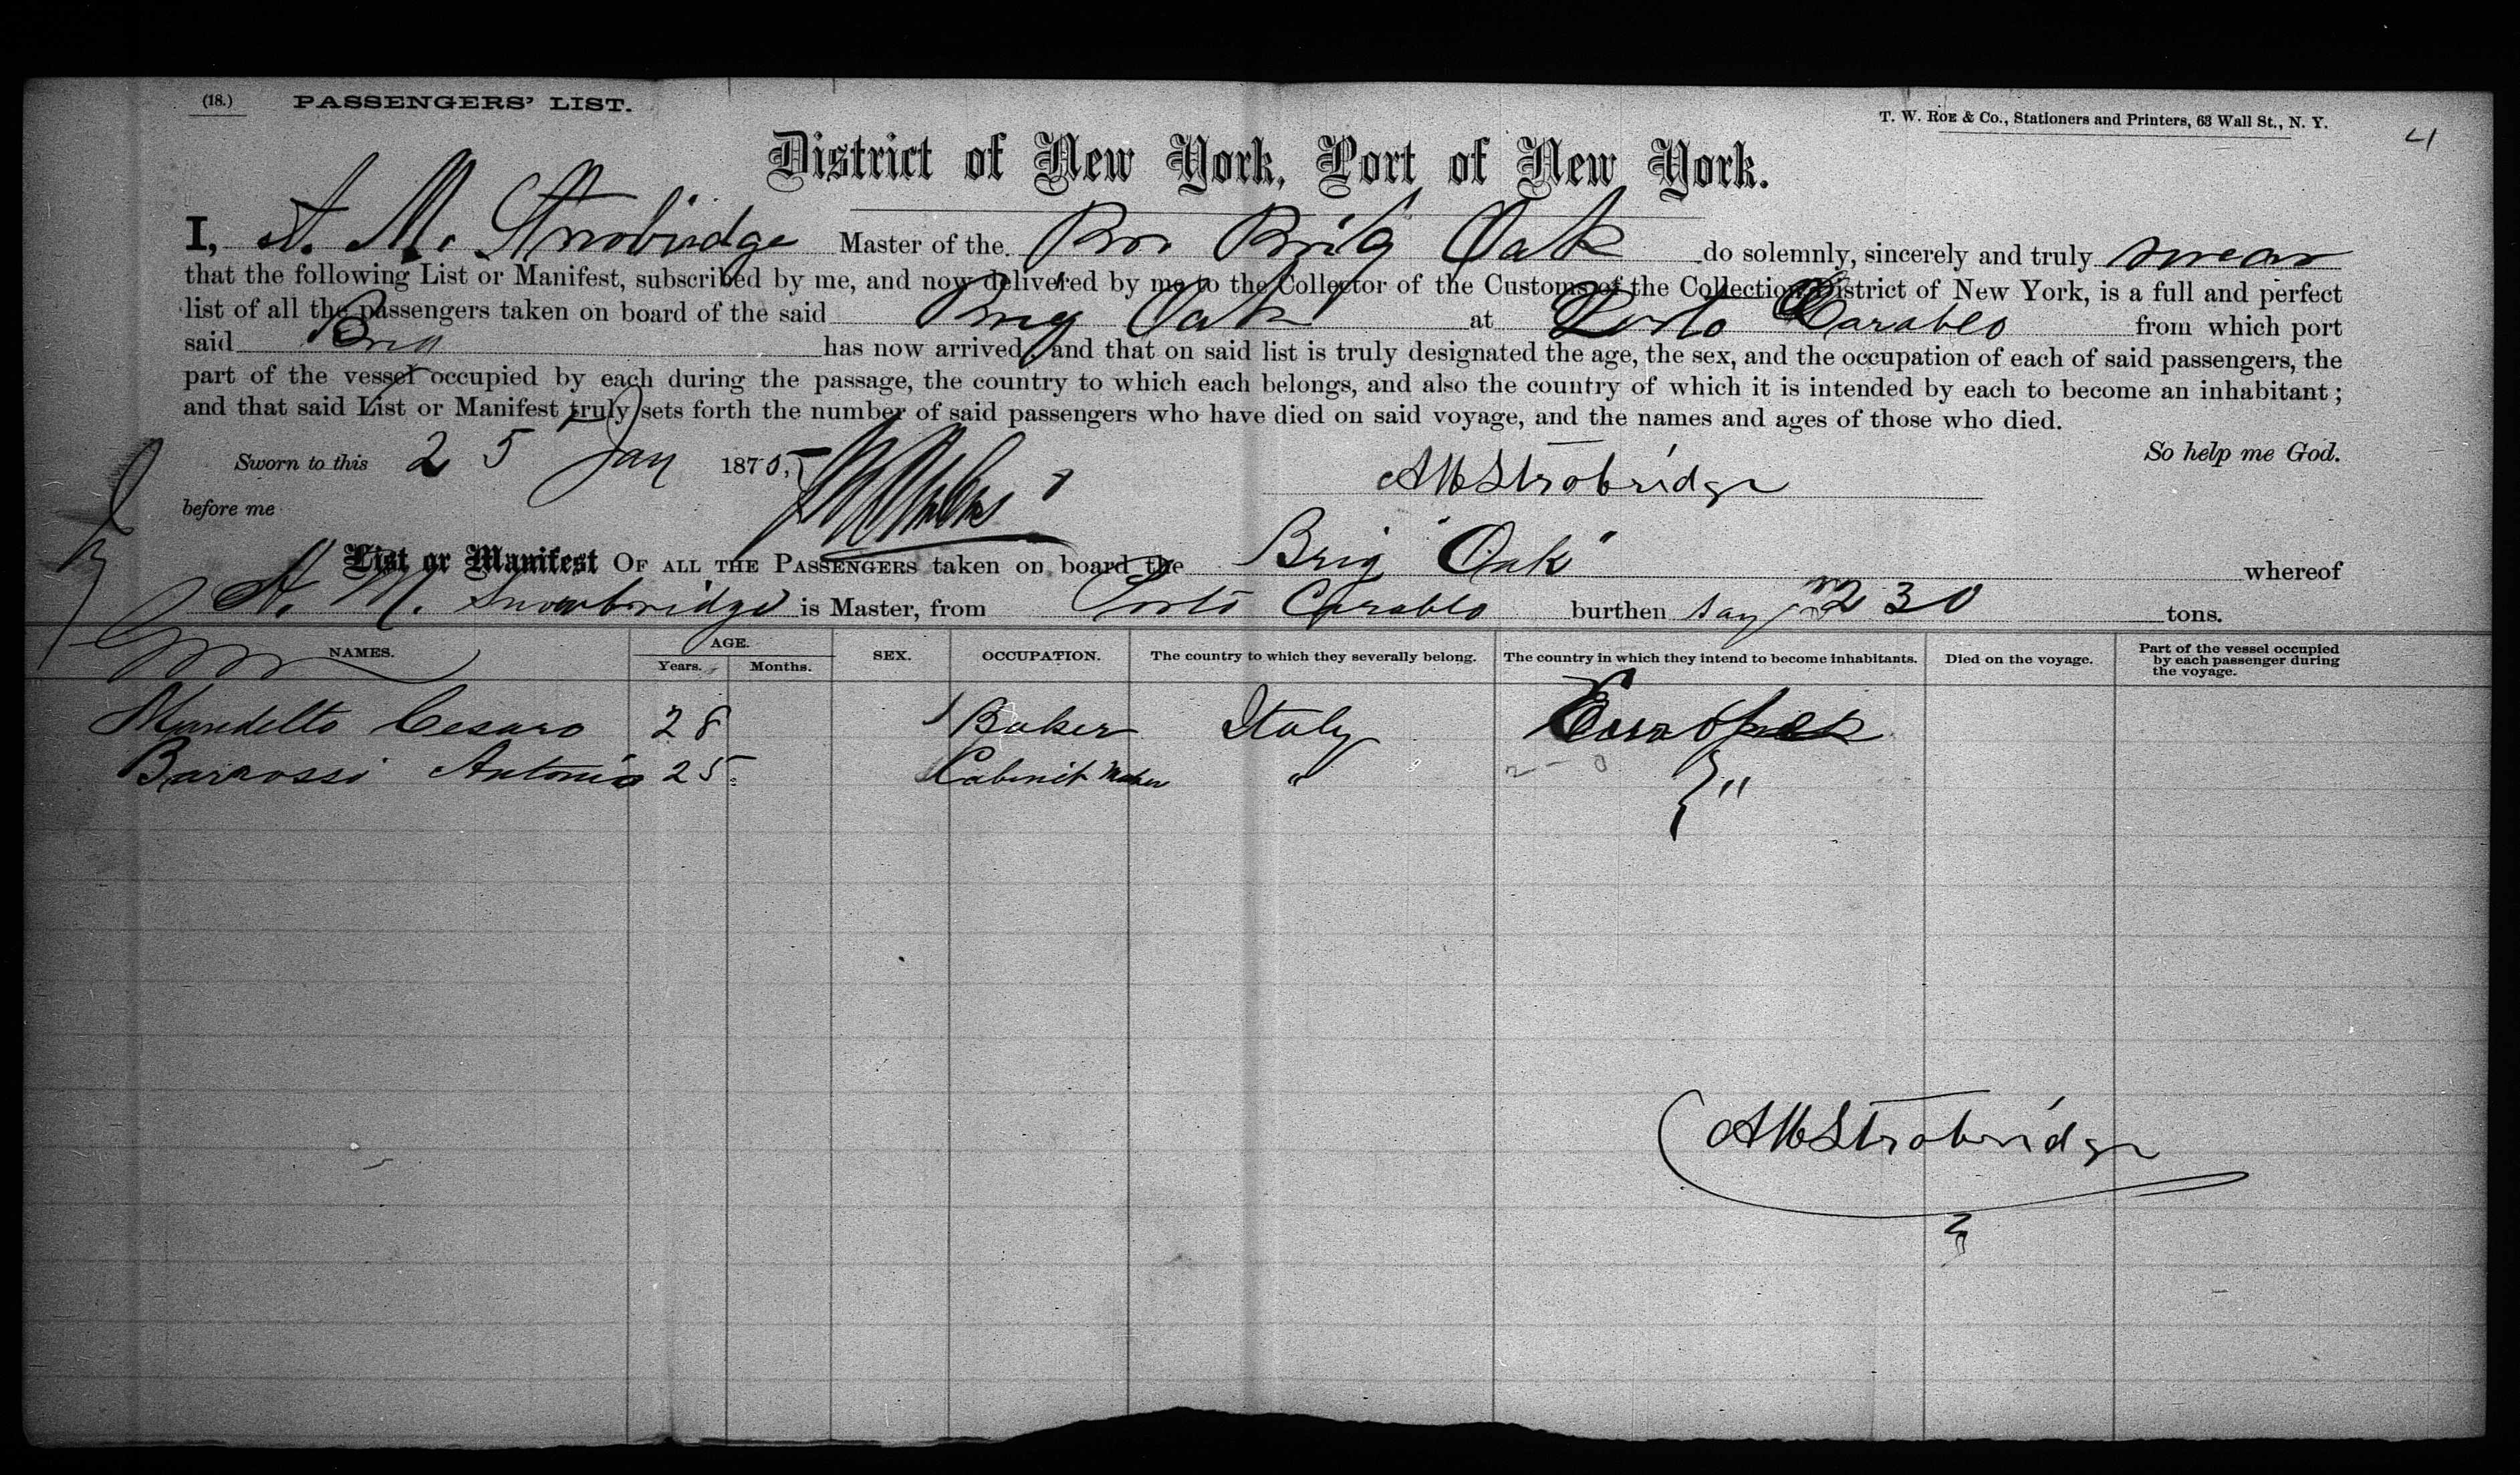 (18.) PASSENGERS' LIST.
T. W. ROE & Co., Stationers and Printers, 63 Wall St., N. Y.
4
District of New York, Port of New York.
I, A. M. Strobridge Master of the Br. Brig Oak do solemnly, sincerely and truly swear
that the following List or Manifest, subscribed by me, and now delivered by me to the Collector of the Customs of the Collection District of New York, is a full and perfect
list of all the passengers taken on board of the said Brig Oak at Porto Carablo from which port
said Brig has now arrived; and that on said list is truly designated the age, the sex, and the occupation of each of said passengers, the
part of the vessel occupied by each during the passage, the country to which each belongs, and also the country of which it is intended by each to become an inhabitant;
and that said List or Manifest truly sets forth the number of said passengers who have died on said voyage, and the names and ages of those who died.
Sworn to this 25 Jany 1875, So help me God.
before me AM Strobridge
List or Manifest OF ALL THE PASSENGERS taken on board the Brig "Oak" whereof
A. M. Snowbridge is Master, from Porto Carablo burthen say 230 tons.
NAMES. AGE. Years. Months. SEX. OCCUPATION. The country to which they severally belong. The country in which they intend to become inhabitants. Died on the voyage. Part of the vessel occupied by each passenger during the voyage.
Mundelto Cesaro 28 Baker Italy
Barrossi Antonio 25 Cabinet Maker " "
AM Strobridge